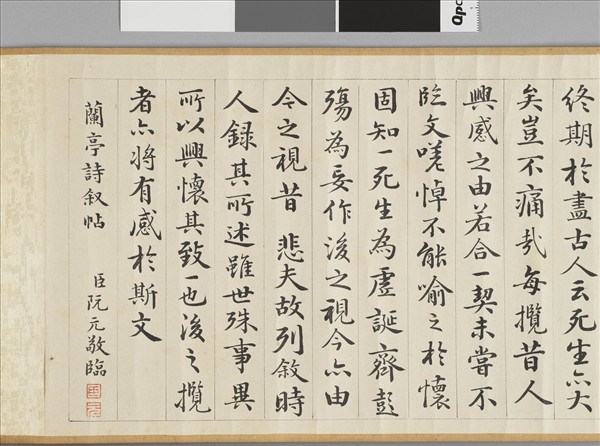 終期於盡古人云死生亦大
矣豈不痛哉每攬昔人
興感之由若合一契未嘗不
臨文嗟悼不能喻之於懷
固知一死生為虛誕齊彭
殤為妄作後之視今亦由
今之視昔 悲夫故列敘時
人錄其所述雖世殊事異
所以興懷其致一也後之攬
者亦將有感於斯文
蘭亭詩叙帖
臣阮元敬臨